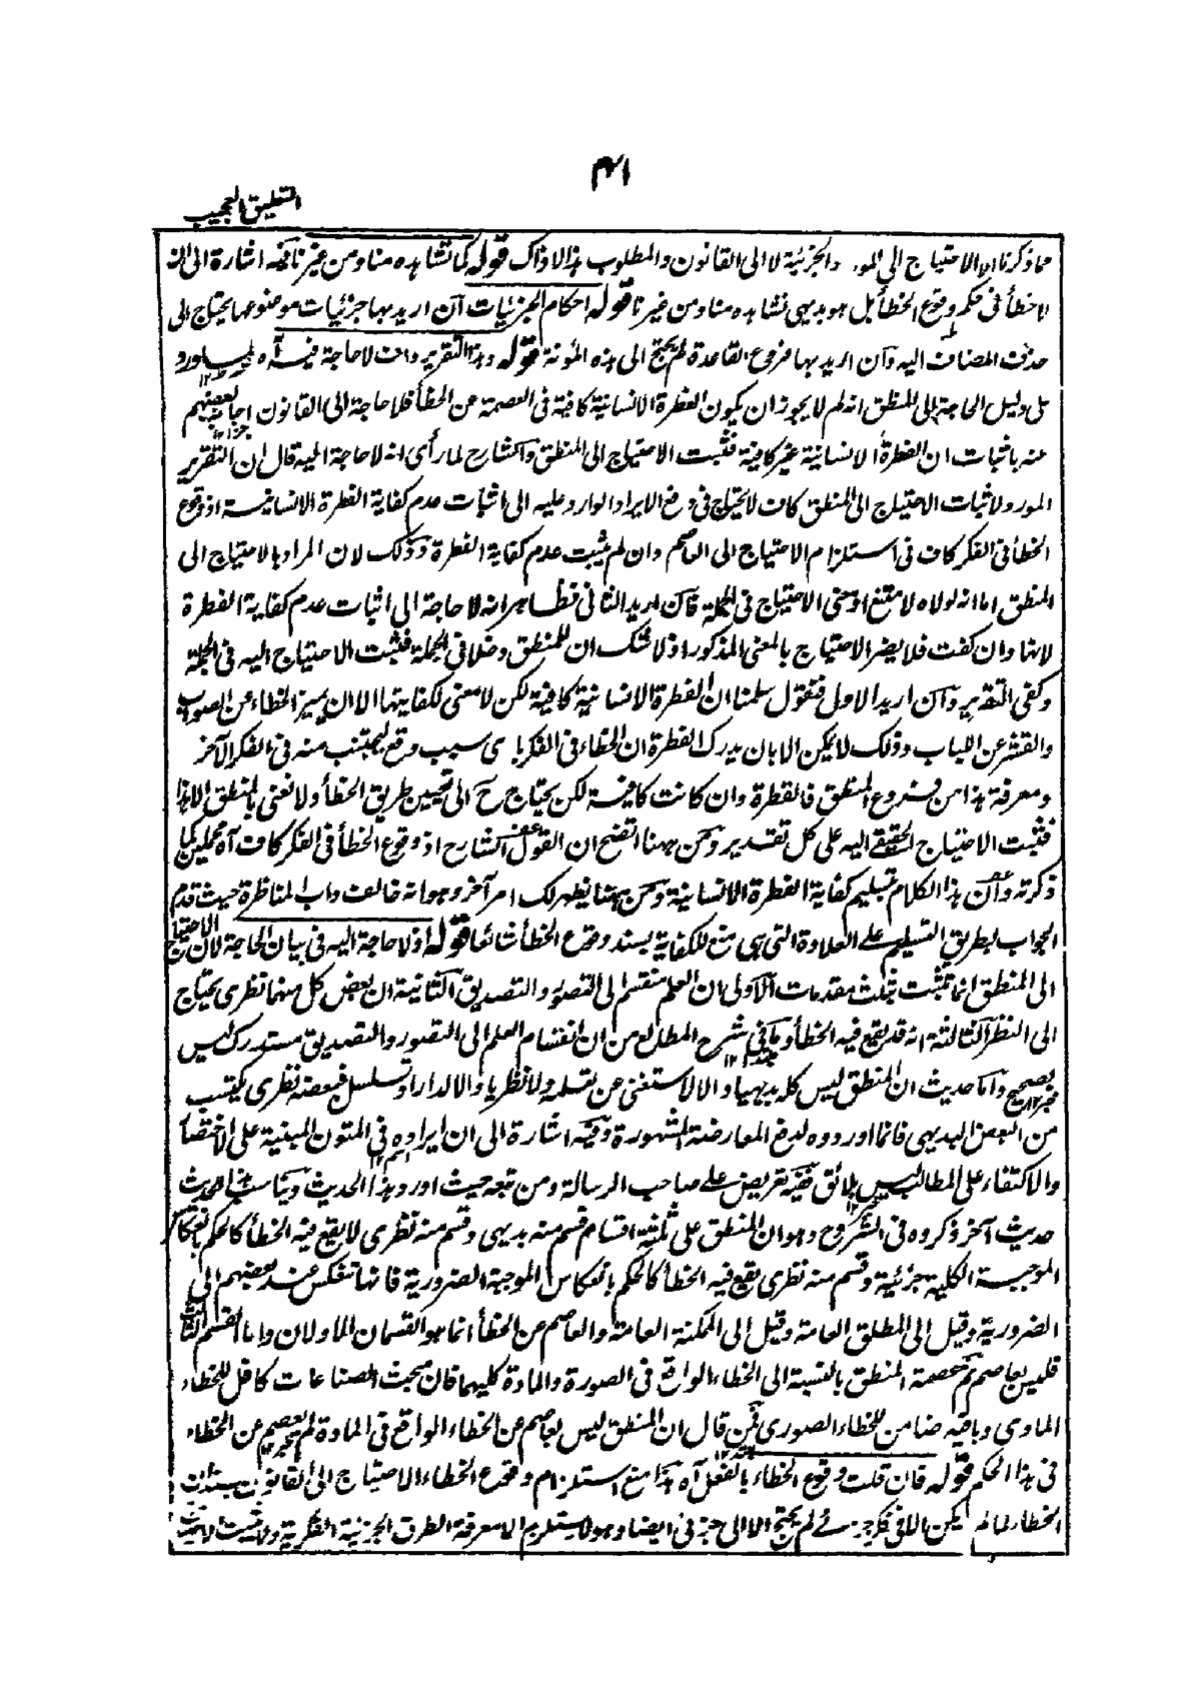 ٣١
التعليق العجيب
مما ذكرنا الا الاحتياج الى المواد والجزئية لا الى القانون والمطلوب هذا لا ذاك قوله كما تشاهده منا ومن غيرنا فيه اشارة الى ان
لا خطأ فى حكم وقوع الخطأ بل هو بديهى نشاهده منا ومن غيرنا قوله احكام الجزئيات ان اريد بها جزئيات موضوعها يحتاج الى
حذف المضاف اليه وان اريد بها فروع القاعدة لم يحتج الى هذه المؤنة قوله وهذا التقرير واف لا حاجة فيه آه
على دليل الحاجة الى المنطق انه لم لا يجوز ان يكون الفطرة الانسانية كافية فى العصمة عن الخطأ فلا حاجة الى القانون اجاب بعضهم
عنه باثبات ان الفطرة الانسانية غير كافية فثبت الاحتياج الى المنطق والشارح لما رأى انه لا حاجة اليه قال ان التقرير
المورد لاثبات الاحتياج الى المنطق كاف لا يحتاج فى دفع الايراد الوارد عليه الى اثبات عدم كفاية الفطرة الانسانية اذ وقوع
الخطأ فى الفكر كاف فى استلزام الاحتياج الى العاصم وان لم يثبت عدم كفاية الفطرة وذلك لان المراد بالاحتياج الى
المنطق اما انه لولاه لامتنع او معنى الاحتياج فى الجملة فان اريد الثانى فظاهر انه لا حاجة الى اثبات عدم كفاية الفطرة
لانها وان كفت فلا يضر الاحتياج بالمعنى المذكور اذ لا شك ان للمنطق دخلا فى الجملة فثبت الاحتياج اليه فى الجملة
وكفى التقرير وان اريد الاول فنقول سلمنا ان الفطرة الانسانية كافية لكن لا معنى لكفايتها الا ان يميز الخطاء عن الصواب
والقشر عن اللباب وذلك لا يمكن الا بان يدرك الفطرة ان الخطاء فى الفكر باى سبب وقع ليجتنب منه فى الفكر الآخر
ومعرفة هذا من فروع المنطق فالفطرة وان كانت كافية لكن يحتاج ح الى تحسين طريق الخطأ ولا نعنى بالمنطق الا هذا
فثبت الاحتياج الحقيقى اليه على كل تقدير ومن ههنا اتضح ان القول الشارح اذ وقوع الخطأ فى الفكر كاف آه
ذكرته وان هذا الكلام تسليم كفاية الفطرة الانسانية ومن ههنا يظهر لك امر آخر وهو انه خالف داب المناظرة حيث قدم
الجواب بطريق التسليم على العلاوة التى هى منع للكفاية بسند وقوع الخطأ شائعا قوله اذ لا حاجة اليه فى بيان الحاجة لان الاحتياج
الى المنطق انما تثبت بثلث مقدمات الاولى ان العلم منقسم الى التصور والتصديق الثانية ان بعض كل منهما نظرى يحتاج
الى النظر الثالثة انه قد يقع فيه الخطأ وما فى شرح المطالع من ان انقسام العلم الى التصور والتصديق مستدرك ليس
بصحيح واما حديث ان المنطق ليس كله بديهيا والا لاستغنى عن تعلمه ولا نظريا والا لدار او تسلسل فبعضه نظرى يكتسب
من البعض البديهى فانما اوردوه لدفع المعارضة المشهورة وفيه اشارة الى ان ايراده فى المتون المبنية على الاختصار
والاكتفاء على المطالب ليس بلائق ففيه تعريض على صاحب الرسالة ومن تبعه حيث اورد هذا الحديث ويناسب هذا الحديث
حديث آخر ذكروه فى الشروح وهو ان المنطق على ثلثة اقسام قسم منه بديهى وقسم منه نظرى لا يقع فيه الخطأ كالحكم بانعكاس
الموجبة الكلية جزئية وقسم منه نظرى يقع فيه الخطأ كالحكم بانعكاس الموجبة الضرورية فانها تنعكس عند بعضهم الى
الضرورية وقيل الى المطلق العامة وقيل الى الممكنة العامة والعاصم عن الخطأ انما هو القسمان الاولان واما القسم الثالث
فليس بعاصم ثم عصمة المنطق بالنسبة الى الخطاء الواقع فى الصورة والمادة كليهما فان مبحث الصناعات كافل للخطاء
المادى وباقيه ضامن للخطاء الصورى فمن قال ان المنطق ليس بعاصم عن الخطاء الواقع فى المادة لم يعصم عن الخطاء
فى هذا الحكم قوله فان قلت وقوع الخطاء بالفعل آه هذا منع استلزام وقوع الخطاء الاحتياج الى القانون بسند ان
الخطاء لما لم يكن الا فى فكر جزئى لم يحتج الا الى جزئى ايضا وهو لا يستلزم الا معرفة الطرق الجزئية الفكرية ولا يثبت الاحتياج